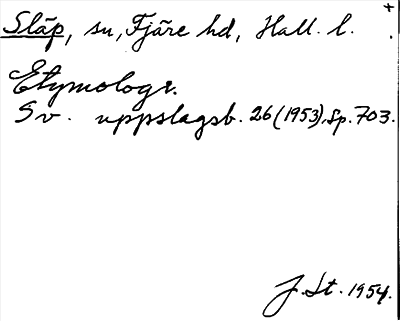 Släp, sn, Fjäre hd, Hall. l.
Etymologi.
Sv. uppslagsb. 26 (1953), sp. 703.
J. St. 1954.